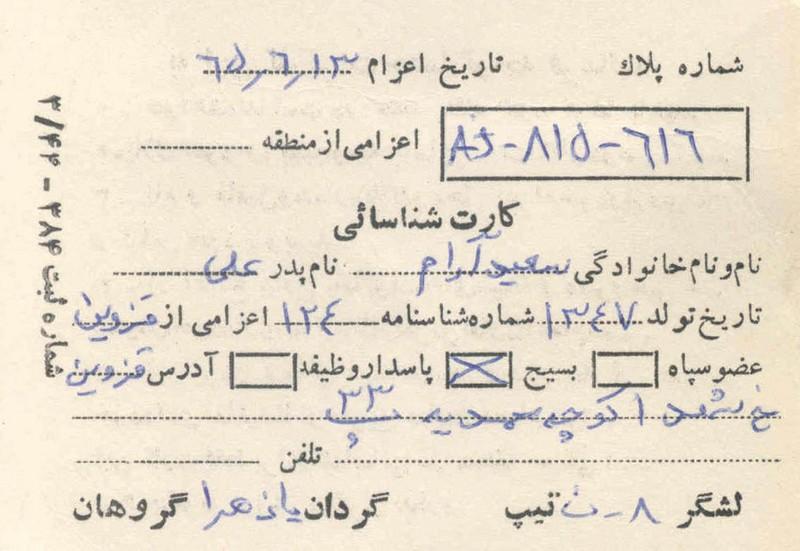 شماره پلاک تاریخ اعزام ٦٥٫٦٫١٣
AJ-٨١٥-٦١٦ اعزامی از منطقه
کارت شناسائی
نام و نام خانوادگی سعید آرام نام پدر علی
تاریخ تولد ١٣٤٧ شماره شناسنامه ١٢٤ اعزامی از قزوین
عضو سپاه بسیج پاسدار وظیفه آدرس قزوین
خ کوچه پ ٣٣
تلفن
لشگر ٨ - ن تیپ گردان یا زهرا گروهان
شماره ثبت ٣٨٤ - ٣/٤٤